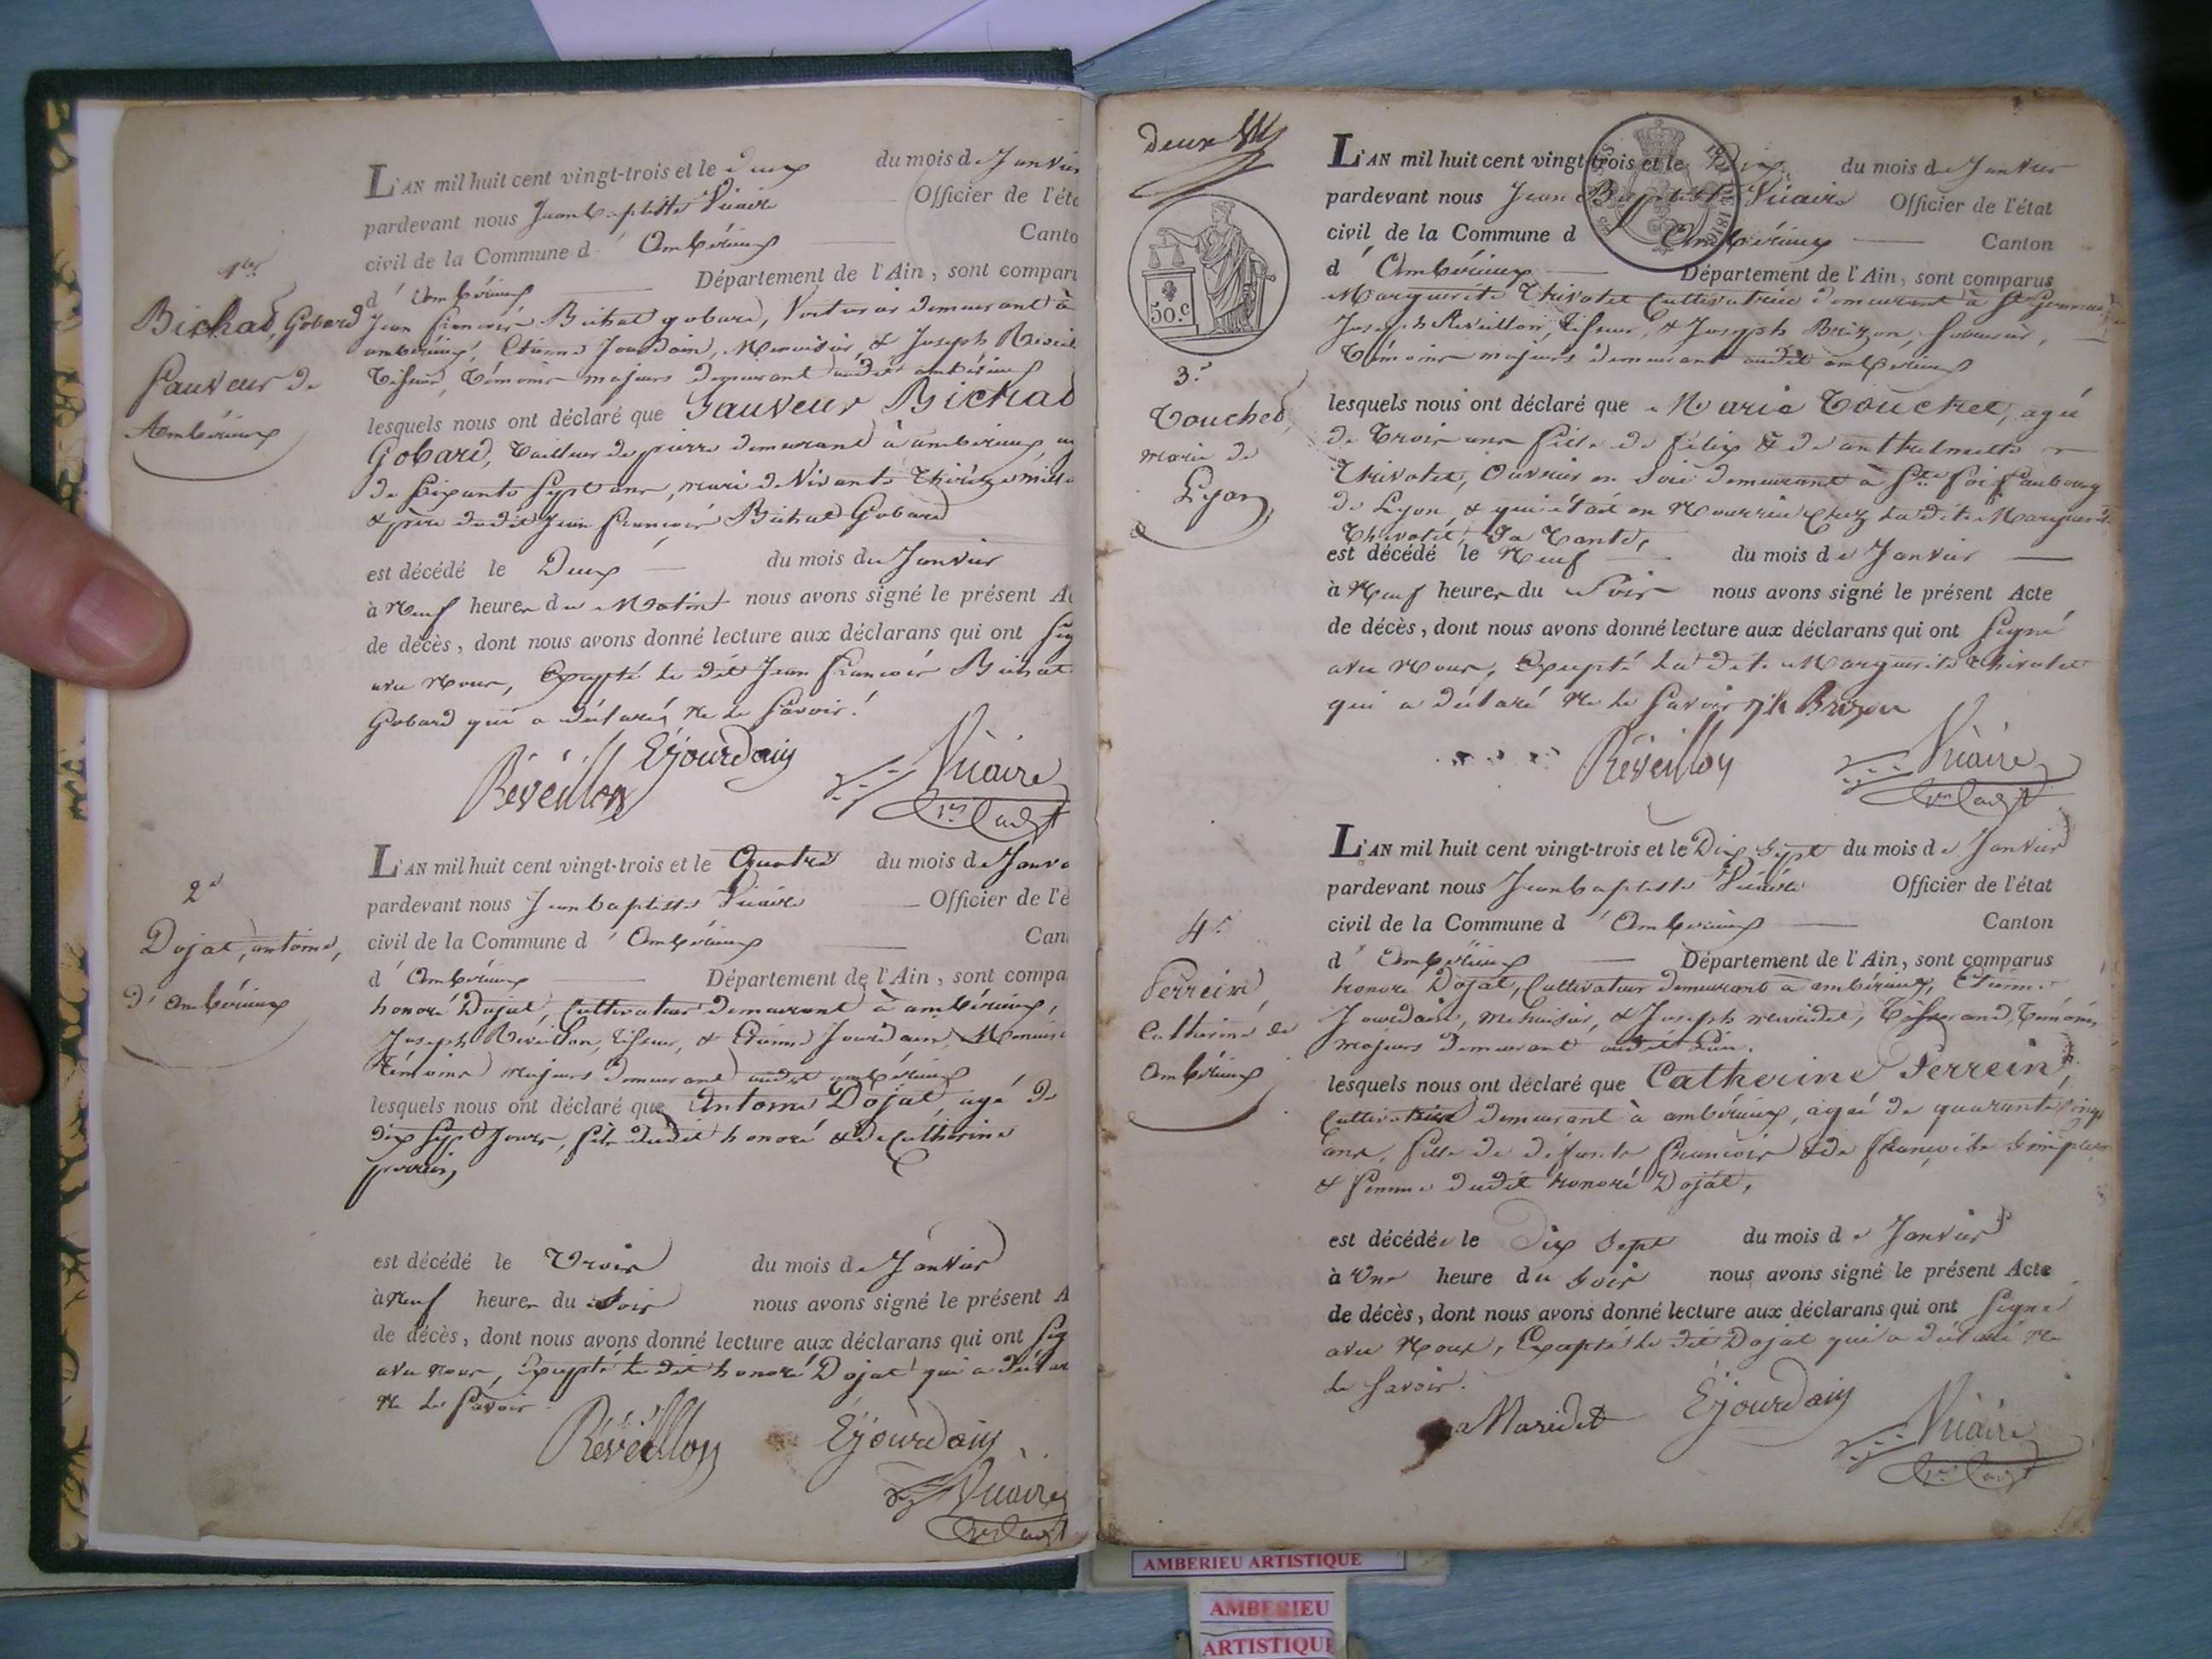 1er
Bichat, Gobard
Sauveur de
Ambérieux
L'AN mil huit cent vingt-trois et le deux du mois de Janvier
pardevant nous Jean baptiste Vicaire Officier de l'éta
civil de la Commune d' Ambérieux Canto
d' Ambérieux Département de l'Ain, sont compar
Jean françois Bichat gobard, demeurant à
ambérieux, Etienne Jourdain, Menuisier, & Joseph Reveil
Tisseur, témoins majeurs demeurant audit ambérieux
lesquels nous ont déclaré que Sauveur Bichat
Gobard, tailleur de pierre demeurant à ambérieux, ag
de Soixante Sept ans, mari de Vivante
& père dudit Jean françois Bichat Gobard
est décédé le Deux du mois de Janvier
à Neuf heures du Matin nous avons signé le présent A
de décès, dont nous avons donné lecture aux déclarans qui ont sig
avec Nous, Excepté le dit Jean françois Bichat
Gobard qui a déclaré Ne le Savoir.
Réveillon Ejourdain Vicaire
2e
Dojat, antoine,
d'ambérieux
L'AN mil huit cent vingt-trois et le Quatre du mois de Janv
pardevant nous Jean baptiste Vicaire Officier de l'é
civil de la Commune d' Ambérieux Can
d' Ambérieux Département de l'Ain, sont compa
honoré Dojat, Cultivateur demeurant à ambérieux,
Joseph Reveillon, tisseur, & Etienne Jourdain, Menuisi
témoins majeurs demeurant audit ambérieux
lesquels nous ont déclaré que Antoine Dojat, agé de
dix Sept Jours, fils dudit honoré & de Catherine
perrein
est décédé le Trois du mois de Janvier
à Neuf heures du Soir nous avons signé le présent A
de décès, dont nous avons donné lecture aux déclarans qui ont sig
avec Nous, Excepté le dit honoré Dojat qui a déclar
Ne le Savoir
Réveillon Ejourdain
Vicaire
deux
50.c
3e
Touchet,
marie de
Lyon
L'AN mil huit cent vingt-trois et le Dix du mois de Janvier
pardevant nous Jean Baptiste Vicaire Officier de l'état
civil de la Commune d' Ambérieux Canton
d' Ambérieux Département de l'Ain, sont comparus
Marguerite Thivolet Cultivatrice demeurant à St
Joseph Reveillon, tisseur, & Joseph Brizon,
témoins majeurs demeurant audit ambérieux
lesquels nous ont déclaré que Marie Touchet, agée
de Trois ans fille de félix & de anthelmette
Thivolet, Ouvrier en Soie demeurant à Ste foi faubourg
de Lyon & qui était en Nourrice Chez la dite Marguerite
Thivolet, Sa Tante,
est décédé le Neuf du mois de Janvier
à Neuf heures du Soir nous avons signé le présent Acte
de décès, dont nous avons donné lecture aux déclarans qui ont Signé
avec Nous, Excepté la dite Marguerite Thivolet
qui a déclaré Ne le Savoir Brizon
Réveillon Vicaire
4e
Perrein
Catherine de
ambérieux
L'AN mil huit cent vingt-trois et le Dix Sept du mois de Janvier
pardevant nous Jean baptiste Vicaire Officier de l'état
civil de la Commune d' Ambérieux Canton
d' Ambérieux Département de l'Ain, sont comparus
honoré Dojat, Cultivateur demeurant à ambérieux, Etienne
Jourdain, Menuisier, & Joseph Tisserand, témoins
majeurs demeurant audit Lieu.
lesquels nous ont déclaré que Catherine Perrein,
Cultivatrice demeurant à ambérieux, agée de quarante Cinq
ans, fille de défunts françois & de françoise
& femme dudit honoré Dojat,
est décédée le Dix Sept du mois de Janvier
à Une heure du Soir nous avons signé le présent Acte
de décès, dont nous avons donné lecture aux déclarans qui ont Signé
avec Nous, Excepté le dit Dojat qui a déclaré Ne
le Savoir.
Ejourdain Vicaire
AMBERIEU ARTISTIQUE
AMBERIEU
ARTISTIQUE